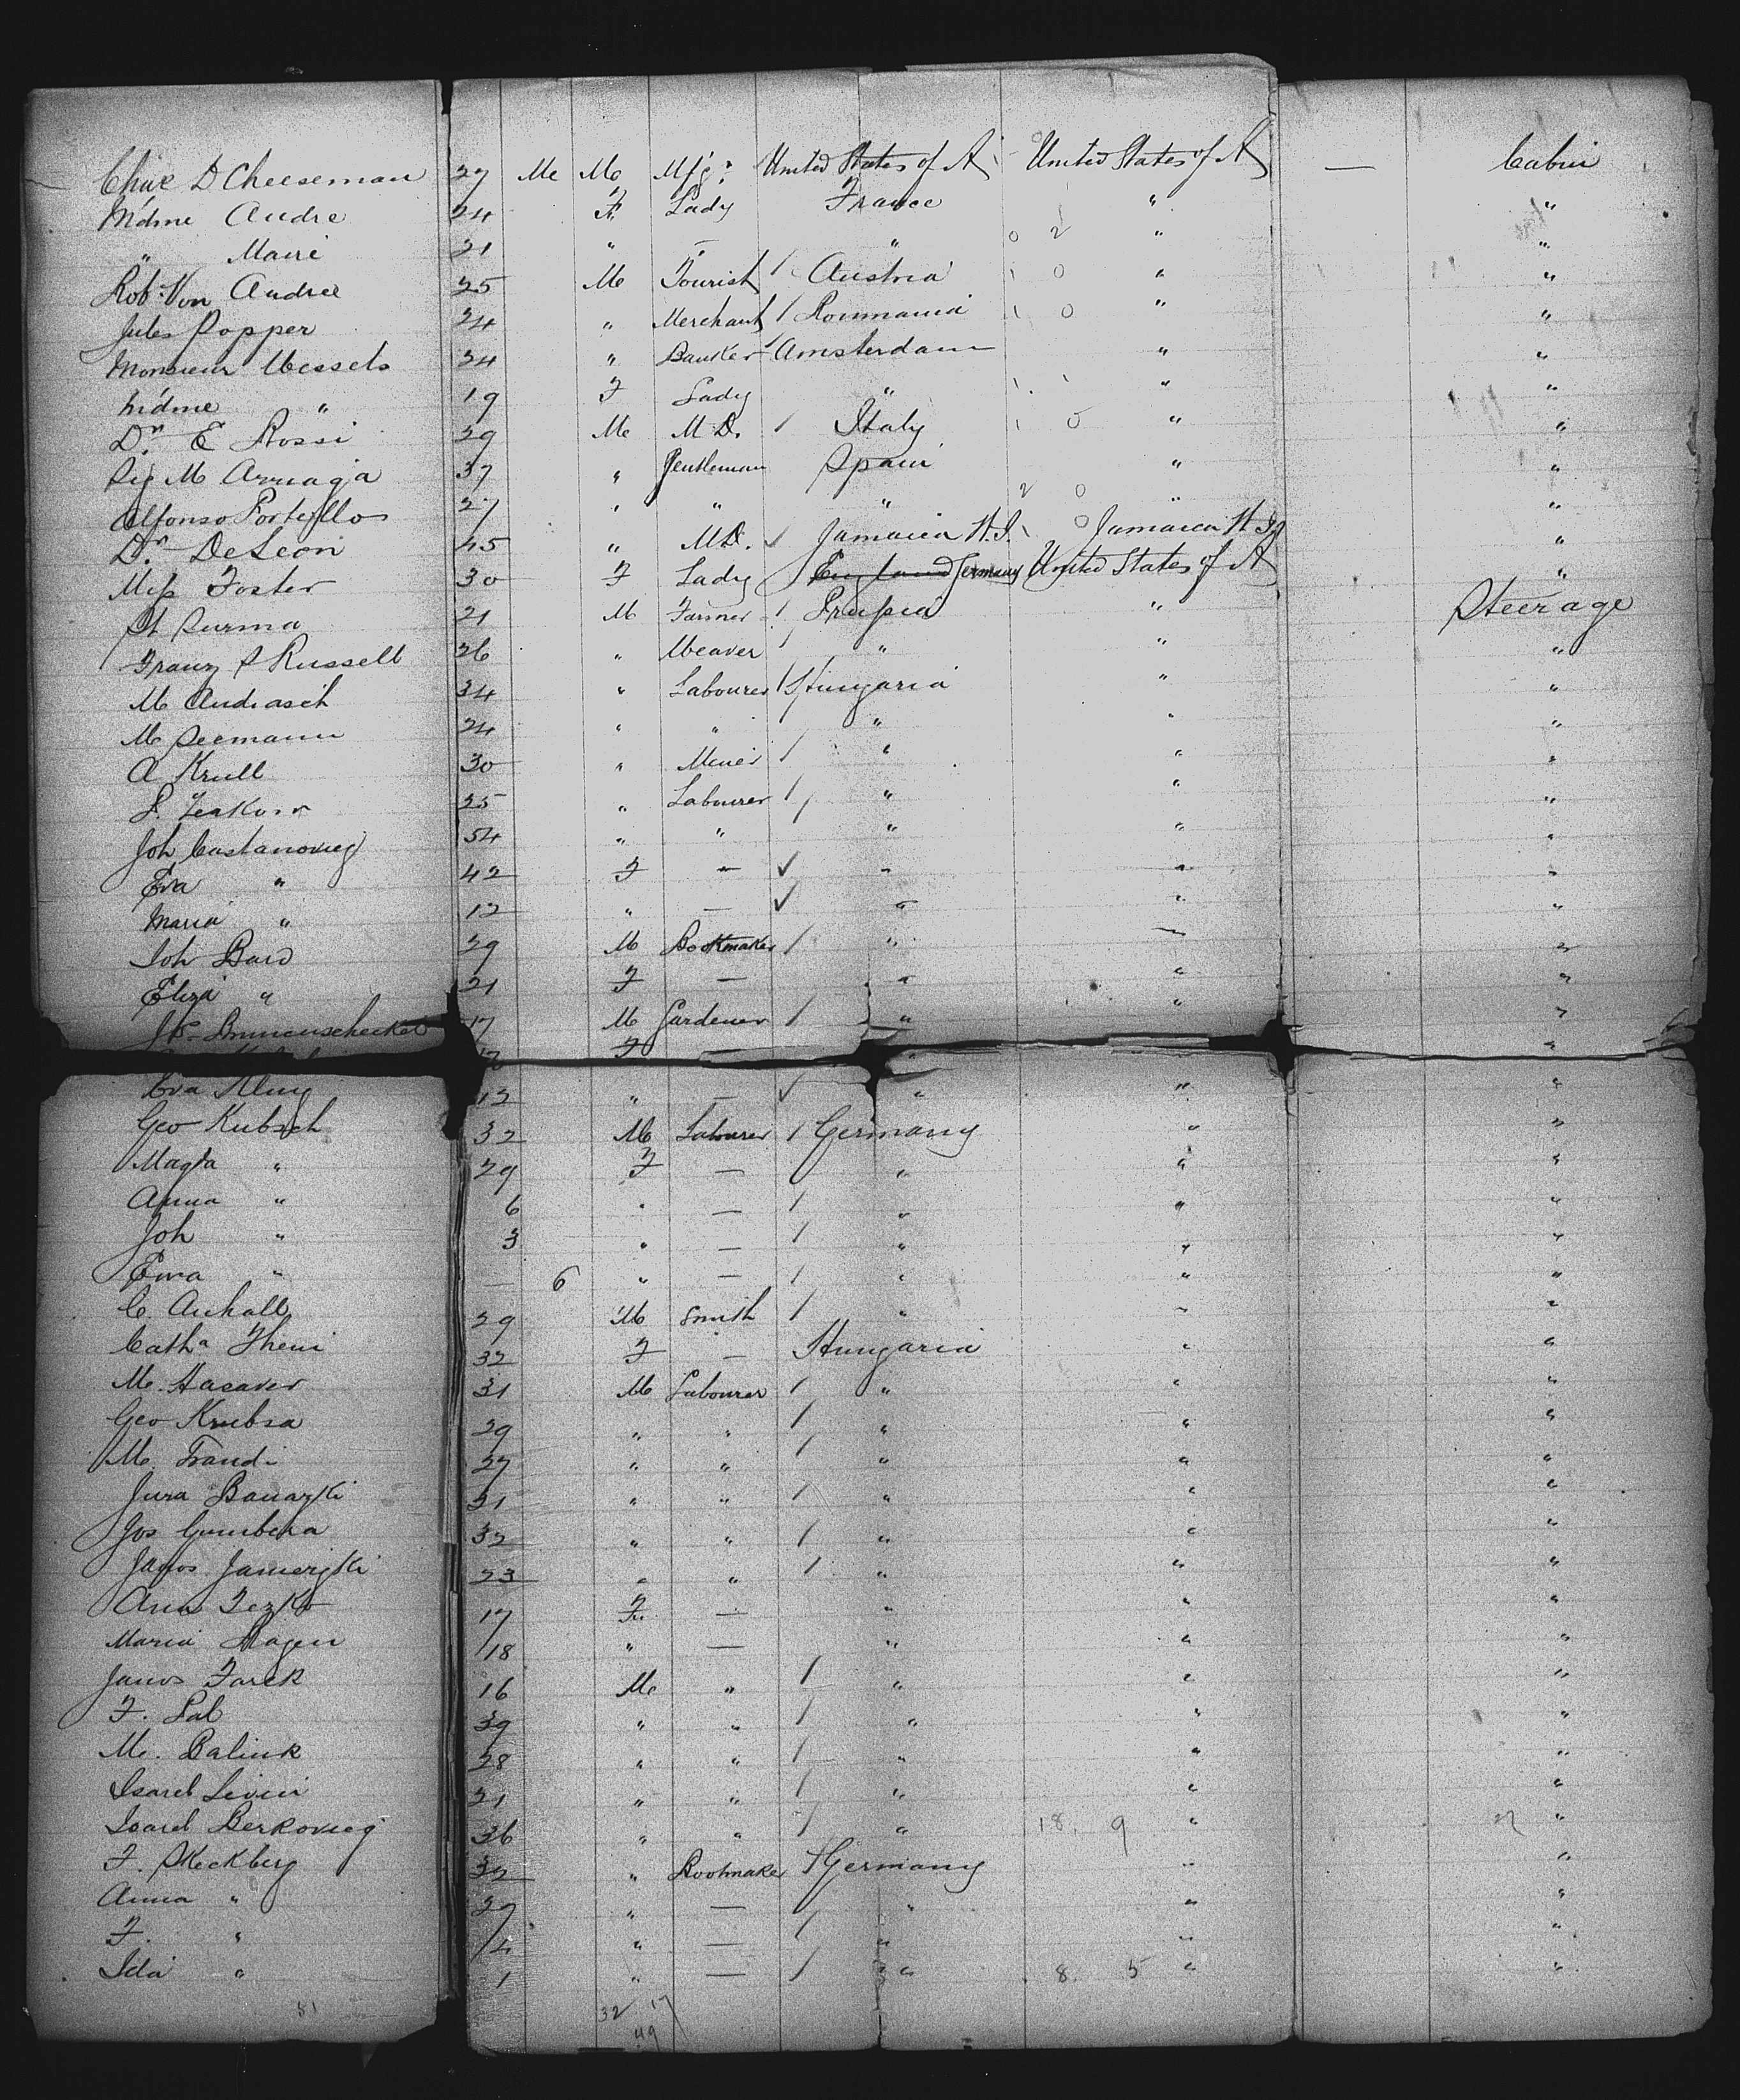 Chas D Cheeseman 27 Me Me Mfg: United States of A United States of A — Cabin
Mdme Andre 24 F. Lady France " "
" Marie 21 " — " 0 2 " "
Rob. Von Andree 25 Me Tourist / Austria 1 0 " "
Jules Popper 24 " Merchant / Roumania 1 0 " "
Monsieur Wessels 24 " Banker Amsterdam " "
Mdme " 19 F Lady " 1 1 " "
Dr. E Rossi 29 Me M.D. / Italy 1 0 " "
Sig M Arruaga 37 " Gentleman Spain " "
Alfonso Portillo 27 " " " 2 0 " "
Dr. DeLeon 45 " M.D. ✓ Jamaica W.I. 1 0 Jamaica W.I. "
Miss Foster 30 F Lady England Germany United States of A "
St Surma 21 M Farmer / Prussia " Steerage
Franz S Russell 26 " Weaver / " " "
M Andrasch 34 " Labourer / Hungaria " "
M Seemann 24 " " " " "
A Krull 30 " Miner / " " "
25 " Labourer / " " "
Joh 54 " " " " "
Eva " 42 F — ✓ " " "
Maria " 12 " — ✓ " " "
Joh Bard 29 M Bootmaker / " " "
Eliza " 21 F — " " "
17 M Gardener / " " "
F — " "
Eva 12 " — ✓ " " "
Geo Kubsch 32 M Labourer / Germany " "
Magda " 29 F — " " "
Anna " 6 " — / " " "
Joh " 3 " — / " " "
Ewa " — 6 " — / " " "
C. Anhalt 29 M Smith / " " "
Catha Theni 32 F — Hungaria " "
M. Hasaver 31 M Labourer / " " "
Geo Krubsa 29 " " / " " "
M. 27 " " / " " "
Jura 21 " " / " " "
Jos Gumbera 32 " " / " " "
Janos 23 " " / " " "
Ana 17 F. — " " "
Maria Hagen 18 " — " " "
Janos Farek 16 M " / " " "
F. Pal 39 " " / " " "
M. Balink 28 " " / " " "
Isarel Levin 21 " " / " " "
Isarel Berkovieg 36 " " / " 18. 9 " "
F. Skeckberg 32 " Bootmaker / Germany " "
Anna " 27 " — / " " "
F. " 4 " — / " " "
Ida " 1 " — / " 8. 5 " "
51 32 17
49